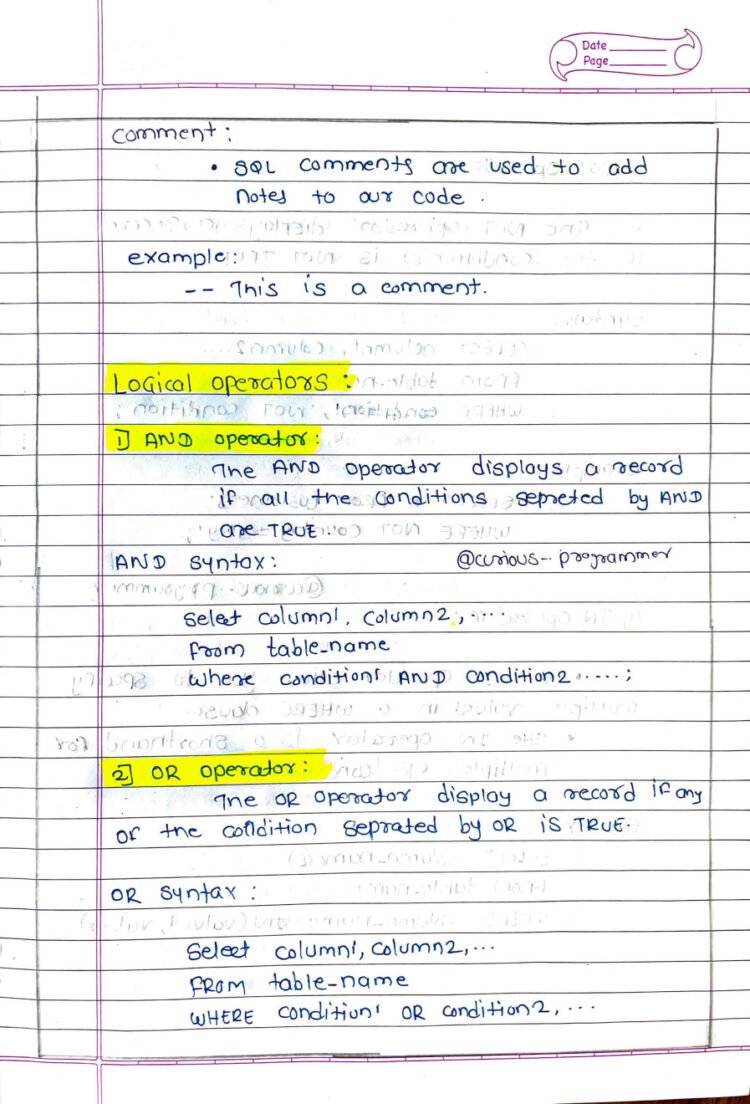 Date
Page
comment :
• SQL comments are used to add
notes to our code .
example:
-- This is a comment.
Logical operators :
1] AND operator:
The AND operator displays a record
if all the conditions sepreted by AND
are TRUE.
AND syntax:
@curious-programmer
Select column1, column2, ....
from table_name
where condition1 AND condition2 ..... ;
2] OR operator:
The OR operator display a record if any
of the condition seprated by OR is TRUE.
OR syntax :
Select column1, column2, ...
FROM table_name
WHERE condition1 OR condition2, ...